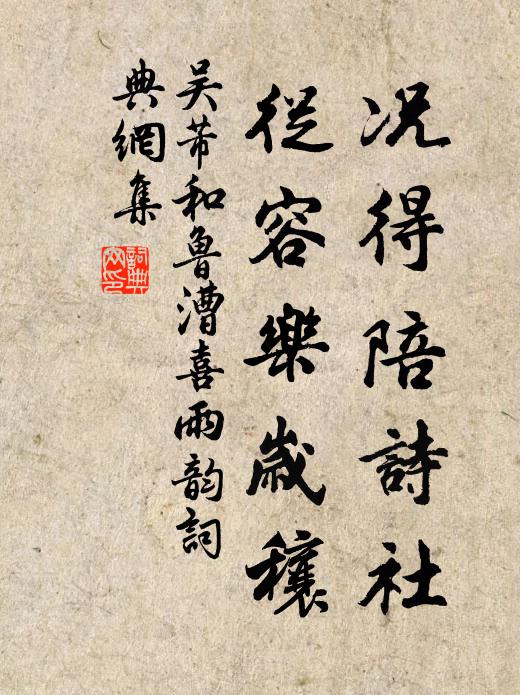 况得陪詩社
從容樂歲穰
吴芾和魯漕喜雨韵詞
典網集
詞典